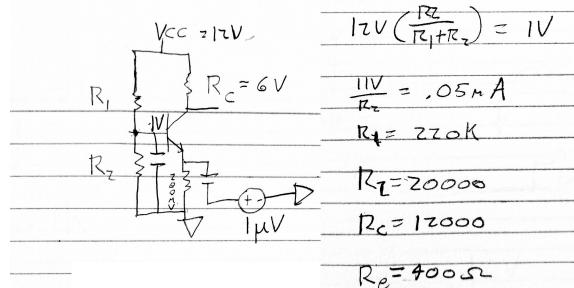 VCC = 12V
RC = 6V
R1
1V
R2
200mV
1µV
12V (R2 / R1+R2) = 1V
11V / R2 = .05mA
R1 = 220K
R2 = 20000
RC = 12000
Re = 400Ω